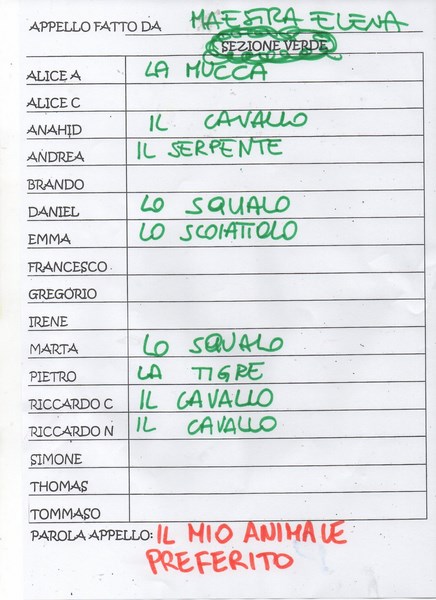 APPELLO FATTO DA MAESTRA ELENA
SEZIONE VERDE
ALICE A LA MUCCA
ALICE C
ANAHID IL CAVALLO
ANDREA IL SERPENTE
BRANDO
DANIEL LO SQUALO
EMMA LO SCOIATTOLO
FRANCESCO
GREGORIO
IRENE
MARTA LO SQUALO
PIETRO LA TIGRE
RICCARDO C IL CAVALLO
RICCARDO N IL CAVALLO
SIMONE
THOMAS
TOMMASO
PAROLA APPELLO: IL MIO ANIMALE
PREFERITO